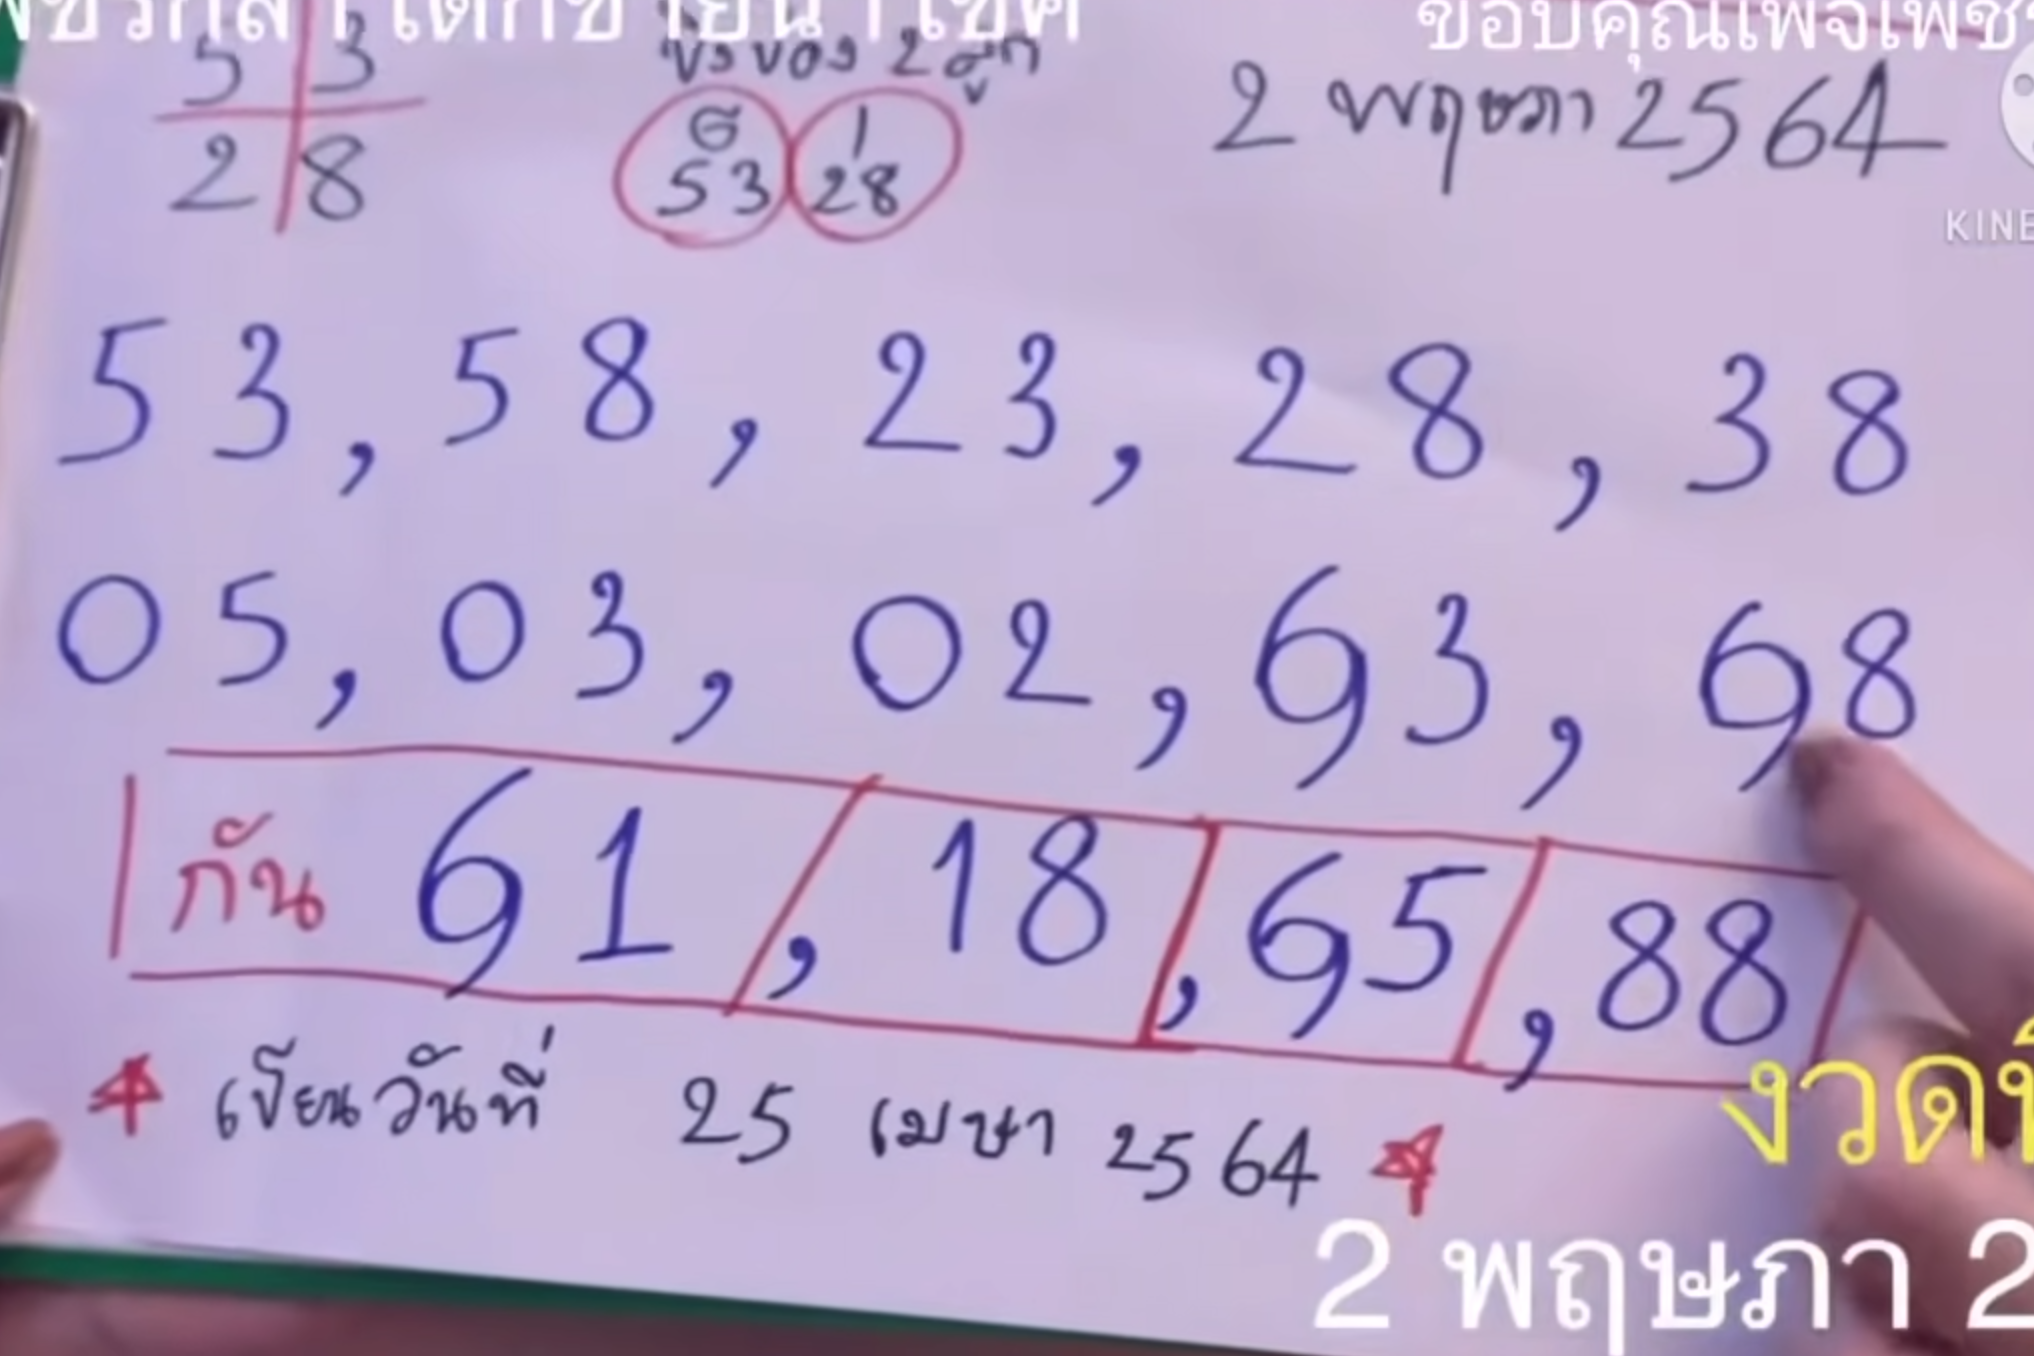 ขอบคุณเพจเพชร
5 3
2 8
2 ลูก
6 1
53 28
2 พฤษภา 2564
KINE
53, 58, 23, 28, 38
05, 03, 02, 63, 68
กัน 61, 18, 65, 88
เขียนวันที่ 25 เมษา 2564
งวดที่
2 พฤษภา 2